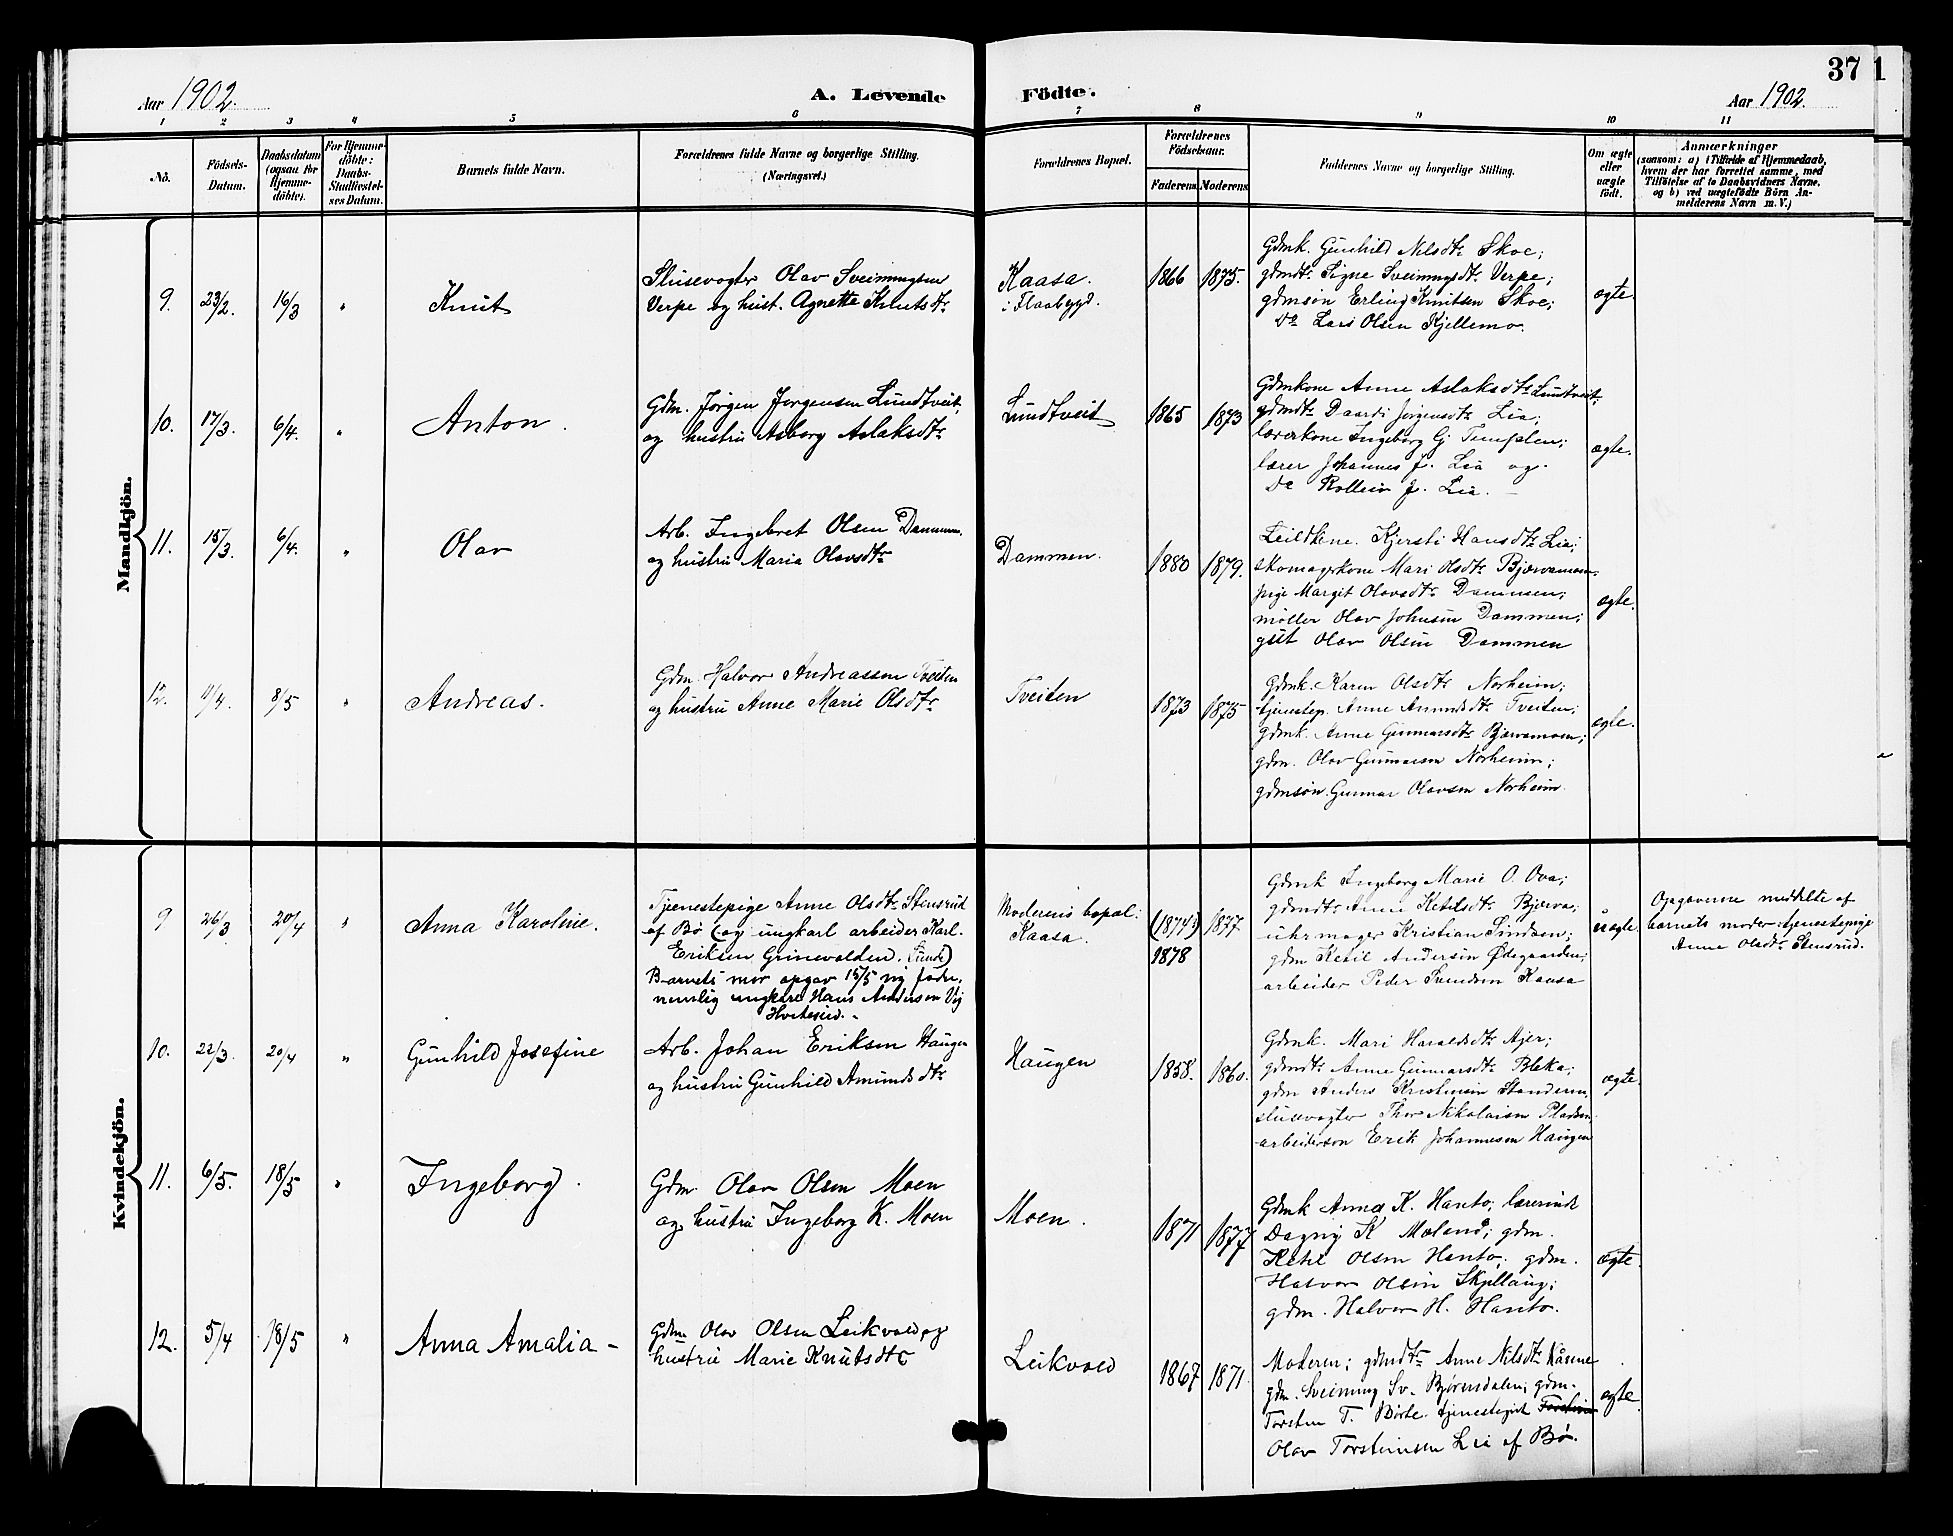 Aar 1902.
A. Levende Födte.
37
1
Aar 1902.
1 2 3 4 5 6 7 8 9 10 11
No.
Födsels-Datum.
Daabsdatum (ogsaa for Hjemme-döbte).
For Hjemme-döbte: Daabs-Stadfæstel-ses Datum.
Barnets fulde Navn.
Forældrenes fulde Navne og borgerlige Stilling.
(Næringsvei.)
Forældrenes Bopæl.
Forældrenes Födselsaar.
Faderens Moderens
Faddernes Navne og borgerlige Stilling.
Om ægte eller uægte födt.
Anmærkninger
(saasom: a) i Tilfælde af Hjemmedaab,
hvem der har forrettet samme, med
Tilföielse af to Daabsvidners Navne,
og b) ved uægtefödte Börn An-
melderens Navn m. V.)
Mandkjön.
9. 23/2. 16/3 " Knut
Slusevogter Olav Sveinungsen
Verpe og hust. Agnette Knutsdtr
Kaasa.
i Flaabygd.
1866 1875.
Gdmk. Gunhild Nilsdtr Skoe;
gdmdtr Signe Sveinungsdtr Verpe;
gdmsøn Erling Knutsen Skoe;
Do Lars Olsen Kjellemo.
ægte.
10. 17/3. 6/4. " Anton.
Gdm. Jørgen Jørgensen Lundtveit,
og hustru Asborg Aslaksdtr
Lundtveit
1865 1873
Gdmkone Anne Aslaksdtr Lundtveit;
gdmdtr Jørgensdtr Lia;
lærerkone Ingeborg G.
lærer Johannes J. Lia og
Do Rollein J. Lia.
ægte.
11. 15/3. 6/4. " Olav
Arb. Ingebret Olsen Dammen.
og hustru Maria Olavsdtr
Dammen.
1880 1879.
Kjersti Hansdtr Lia;
skomagerkone Mari Olsdtr Bjærvamoen
pige Margit Olavsdtr Dammen;
møller Olav Johnsen Dammen;
gut Olav Olsen Dammen
ægte.
12. 11/4. 8/5 " Andreas.
Gdm. Halvor Andreassen Tveiten
og hustru Anne Marie Olsdtr
Tveiten
1873 1875
Gdmk. Karen Olsdtr Norheim;
tjenestep. Anne Amundsdtr Tveiten;
gdmk. Anne Gunnarsdtr Bjærvamoen;
gdm. Olav Gunnarsen Norheim;
gdmsøn. Gunnar Olavsen Norheim.
ægte.
Kvindekjön.
9 26/3 20/4 " Anna Karoline.
Tjenestepige Anne Olsdtr Stensrud
af Bø (og ungkarl arbeider Karl
Eriksen Grinevolden. (Lunde)
Barnets mor opgav 15/5 ny fader,
nemlig ungkarl Hans Andersen Vig
Hvitesed.
Moderens bopæl:
Kaasa.
(1874?) 1877
1878
Gdmk Ingeborg Marie O. Ova;
gdmdtr Anne Ketilsdtr Bjærva;
uhrmager Kristian
gdm Ketil Andersen Ødegaarden;
arbeider Peder Svendsen Kaasa
uægte
Opgaverne meddelte af
barnets moder tjenestepige
Anne Olsdtr Stensrud.
10. 22/3. 20/4 " Gunhild Josefine
Arb. Johan Eriksen Haugen
og hustru Gunhild Amundsdtr
Haugen
1858. 1860.
Gdmk. Mari Haraldsdtr Ajer;
gdmdtr Anne Gunnarsdtr Bleka;
gdm Anders Kristensen
slusevogter Thor Nikolaisen Pladsen
arbeiderson Erik Johannesen Haugen
ægte.
11. 6/5. 18/5 " Ingeborg.
Gdm. Olav Olsen Moen
og hustru Ingeborg K. Moen
Moen.
1871 1877
Gdmk Anna K. Hanto; lærerinde
Dagny K Mæland; gdm.
Ketil Olsen Hanto; gdm.
Halvor Olsen Skjellaug;
gdm. Halvor H. Hanto.
ægte.
12. 5/4 18/5 " Anna Amalia -
Gdm Olav Olsen Leikvold og
hustru Marie Knutsdtr
Leikvold
1867 1871.
Moderen; gdmdtr Anne Nilsdtr Kåsene
gdm. Sveinung Sv. Bjørnsdalen; gdm.
Torsten T. Børte. tjenestegut
Olav Torsteinsen Lia af Bø.
ægte.